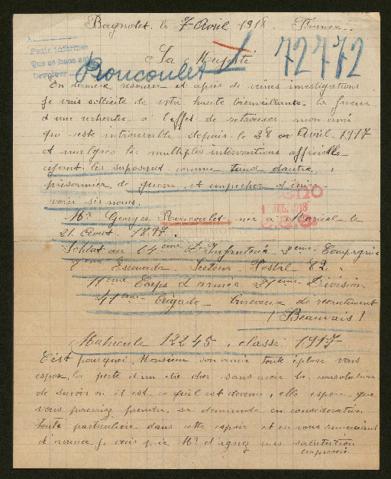 Bagnolet le 7 Avril 1918. France
Sa Majesté
72772
Roncoulet
En dernier ressource et après de vaines investigations
je vous sollicite de votre haute bienveillance, la faveur
d'une recherche à l'effet de retrouver mon ami
qui est introuvable depuis le 28 Avril 1917
et malgré les multiples interventions officielles
prisonnier de guerre et empêcher d'en
voir de nous.
Mr Georges Roncoulet né à le
21 Aout 1897
Soldat au 64ème d'Infanterie 9ème Compagnie
Escouade Secteur Postal 82.
11ème Corps d'armée 21ème Division
41ème Brigade bureau de recrutement
(Beauvais)
Matricule 12245, classe 1917
C'est pourquoi, Monsieur son amie toute éplorée vous
expose la perte d'un être cher sans avoir la consolation
de savoir où il est ce qu'il est devenu, elle espère que
vous prendre sa demande en considération
toute particulière dans cette espoir et en vous remerciant
d'avance je vous prie Mr d'agréez mes salutation